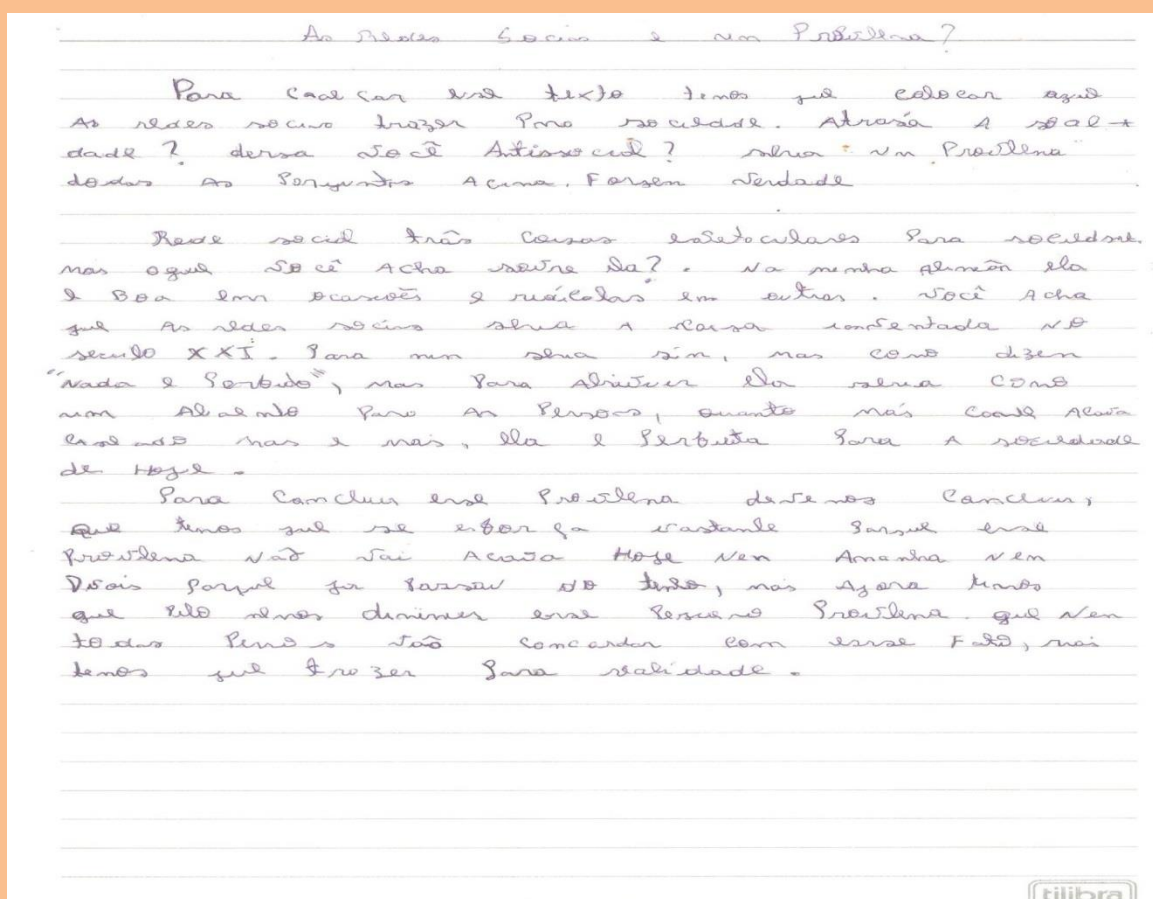 As Redes Socias e um Problema?
Para comesar esse texto temos que colocar aquo
As redes socias trazer Para sociedade. Atrasa A soale
dade? deixa você Antissocial? seria "um Problema"
dodas As Perguntas Acima. Forsem Verdade
Rede social trás coisas espetaculares Para sociedade.
mas oque você Acha sobre da?. Na minha opinião ela
e Boa em ocasioẽs e ruim em outras. Você Acha
que As redes socias seria A coisa inventada NO
seculo XXI. Para mim seria sim, mas como dizem
"Nada e Perfeito", mas Para ela seria como
um Alimento Para As Pessoas, quanto más come Acaba
mas e mais, ela e Perfeita Para A sociedade
de Hoje.
Para Concluir esse Problema devemos Concluir,
que temos que se esforça bastante Porque esse
Problema Não Vai Acaba Hoje Nem Amanha Nem
Depois Porque ja Passou do tempo, mas Agora temos
que Pelo menos diminuir esse Pequeno Problema. que Nem
todas Pessoas Vão concordar com esse Fato, mais
temos que trazer Para realidade.
tilibra